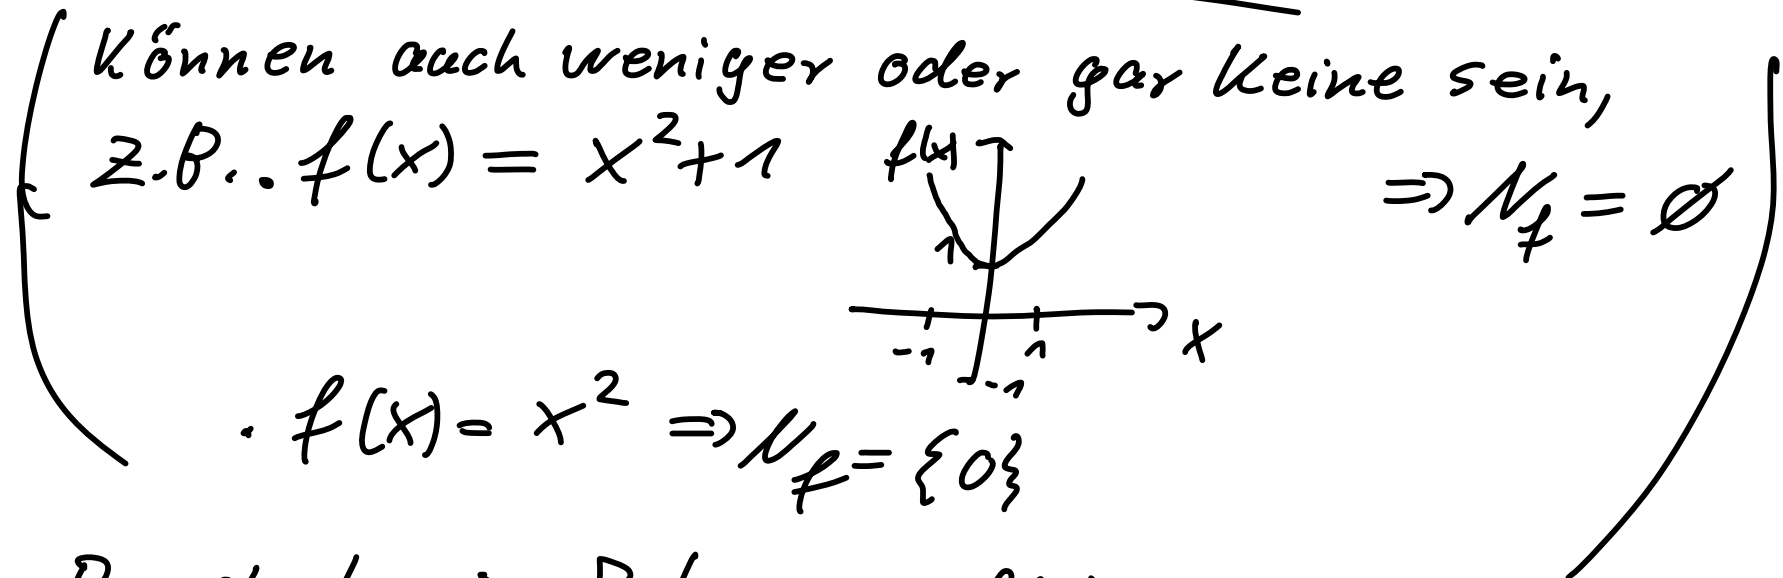 (Können auch weniger oder gar keine sein,
z.B.: • f(x) = x² + 1 ⇒ N_f = ∅
f(x)
1
-1 1 x
-1
• f(x) = x² ⇒ N_f = {0} )